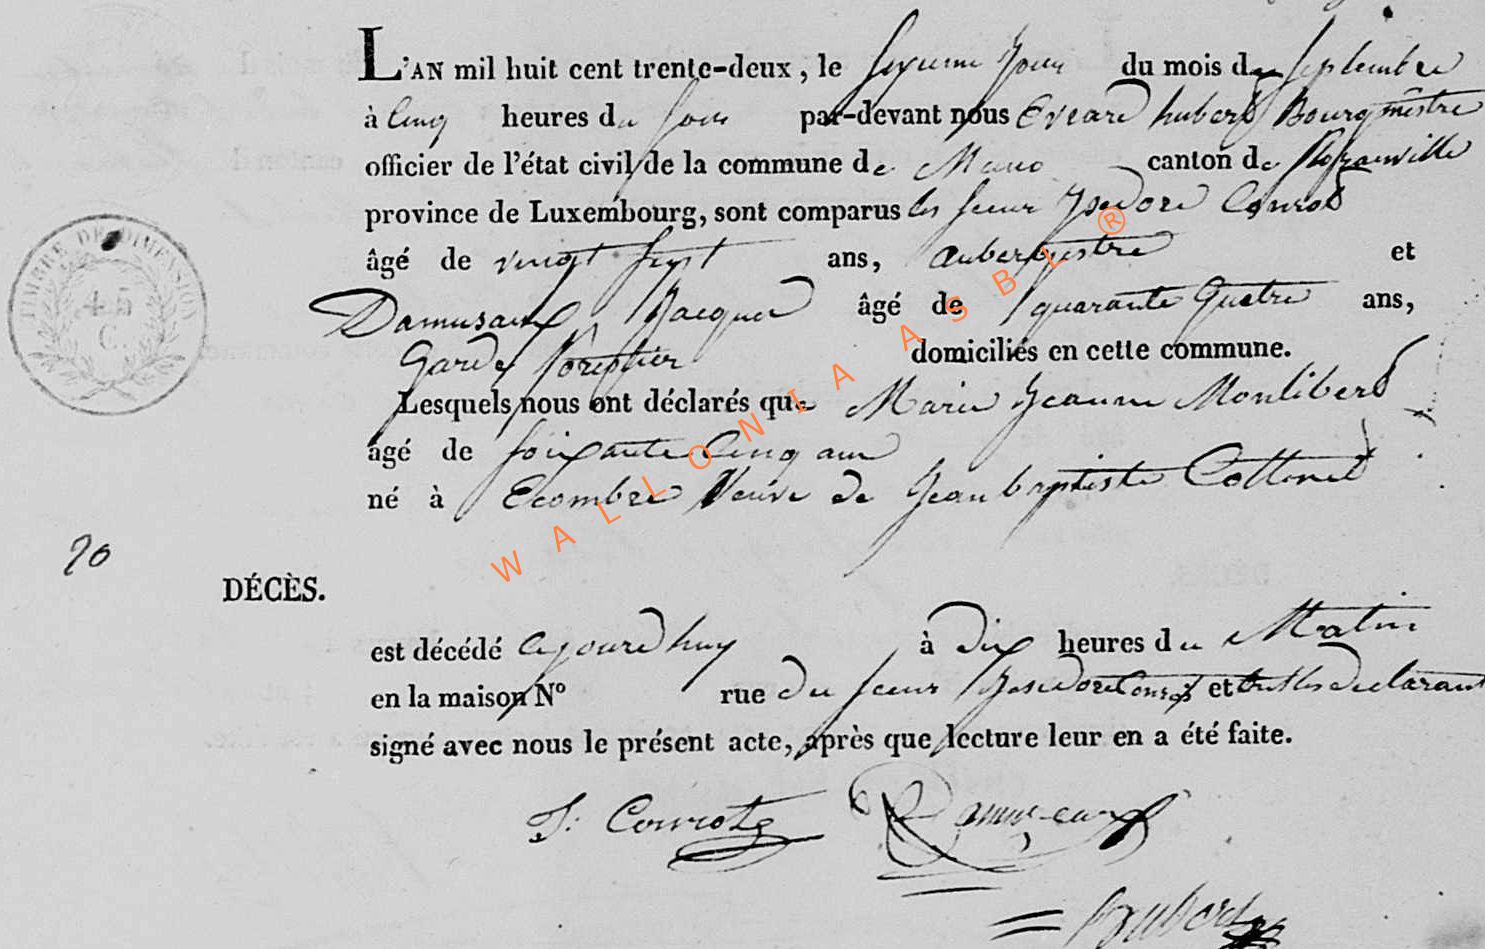 L'AN mil huit cent trente-deux, le sixieme Jour du mois de septembre
à Cinq heures du soir par-devant nous Evrard hubert Bourgmestre
officier de l'état civil de la commune de canton de
province de Luxembourg, sont comparus les sieur Isidore Conrot
âgé de vingt sept ans, aubergistre et
Damusaux Jacque âgé de quarante Quatre ans,
Garde forestier domiciliés en cette commune.
Lesquels nous ont déclarés que Marie Jeanne Monlibert
âgé de soixante Cinq ans
né à Ecombre Veuve de Jean baptiste Collinet
90
DÉCÈS.
est décédé cejourdhuy à dix heures du Matin
en la maison N° rue du sieur Isidore Conrot et les declarant
signé avec nous le présent acte, après que lecture leur en a été faite.
J: Conrotz Damuseaux
TIMBRE DE DIMENSION
45
C.
WALLONIA ASBL ®